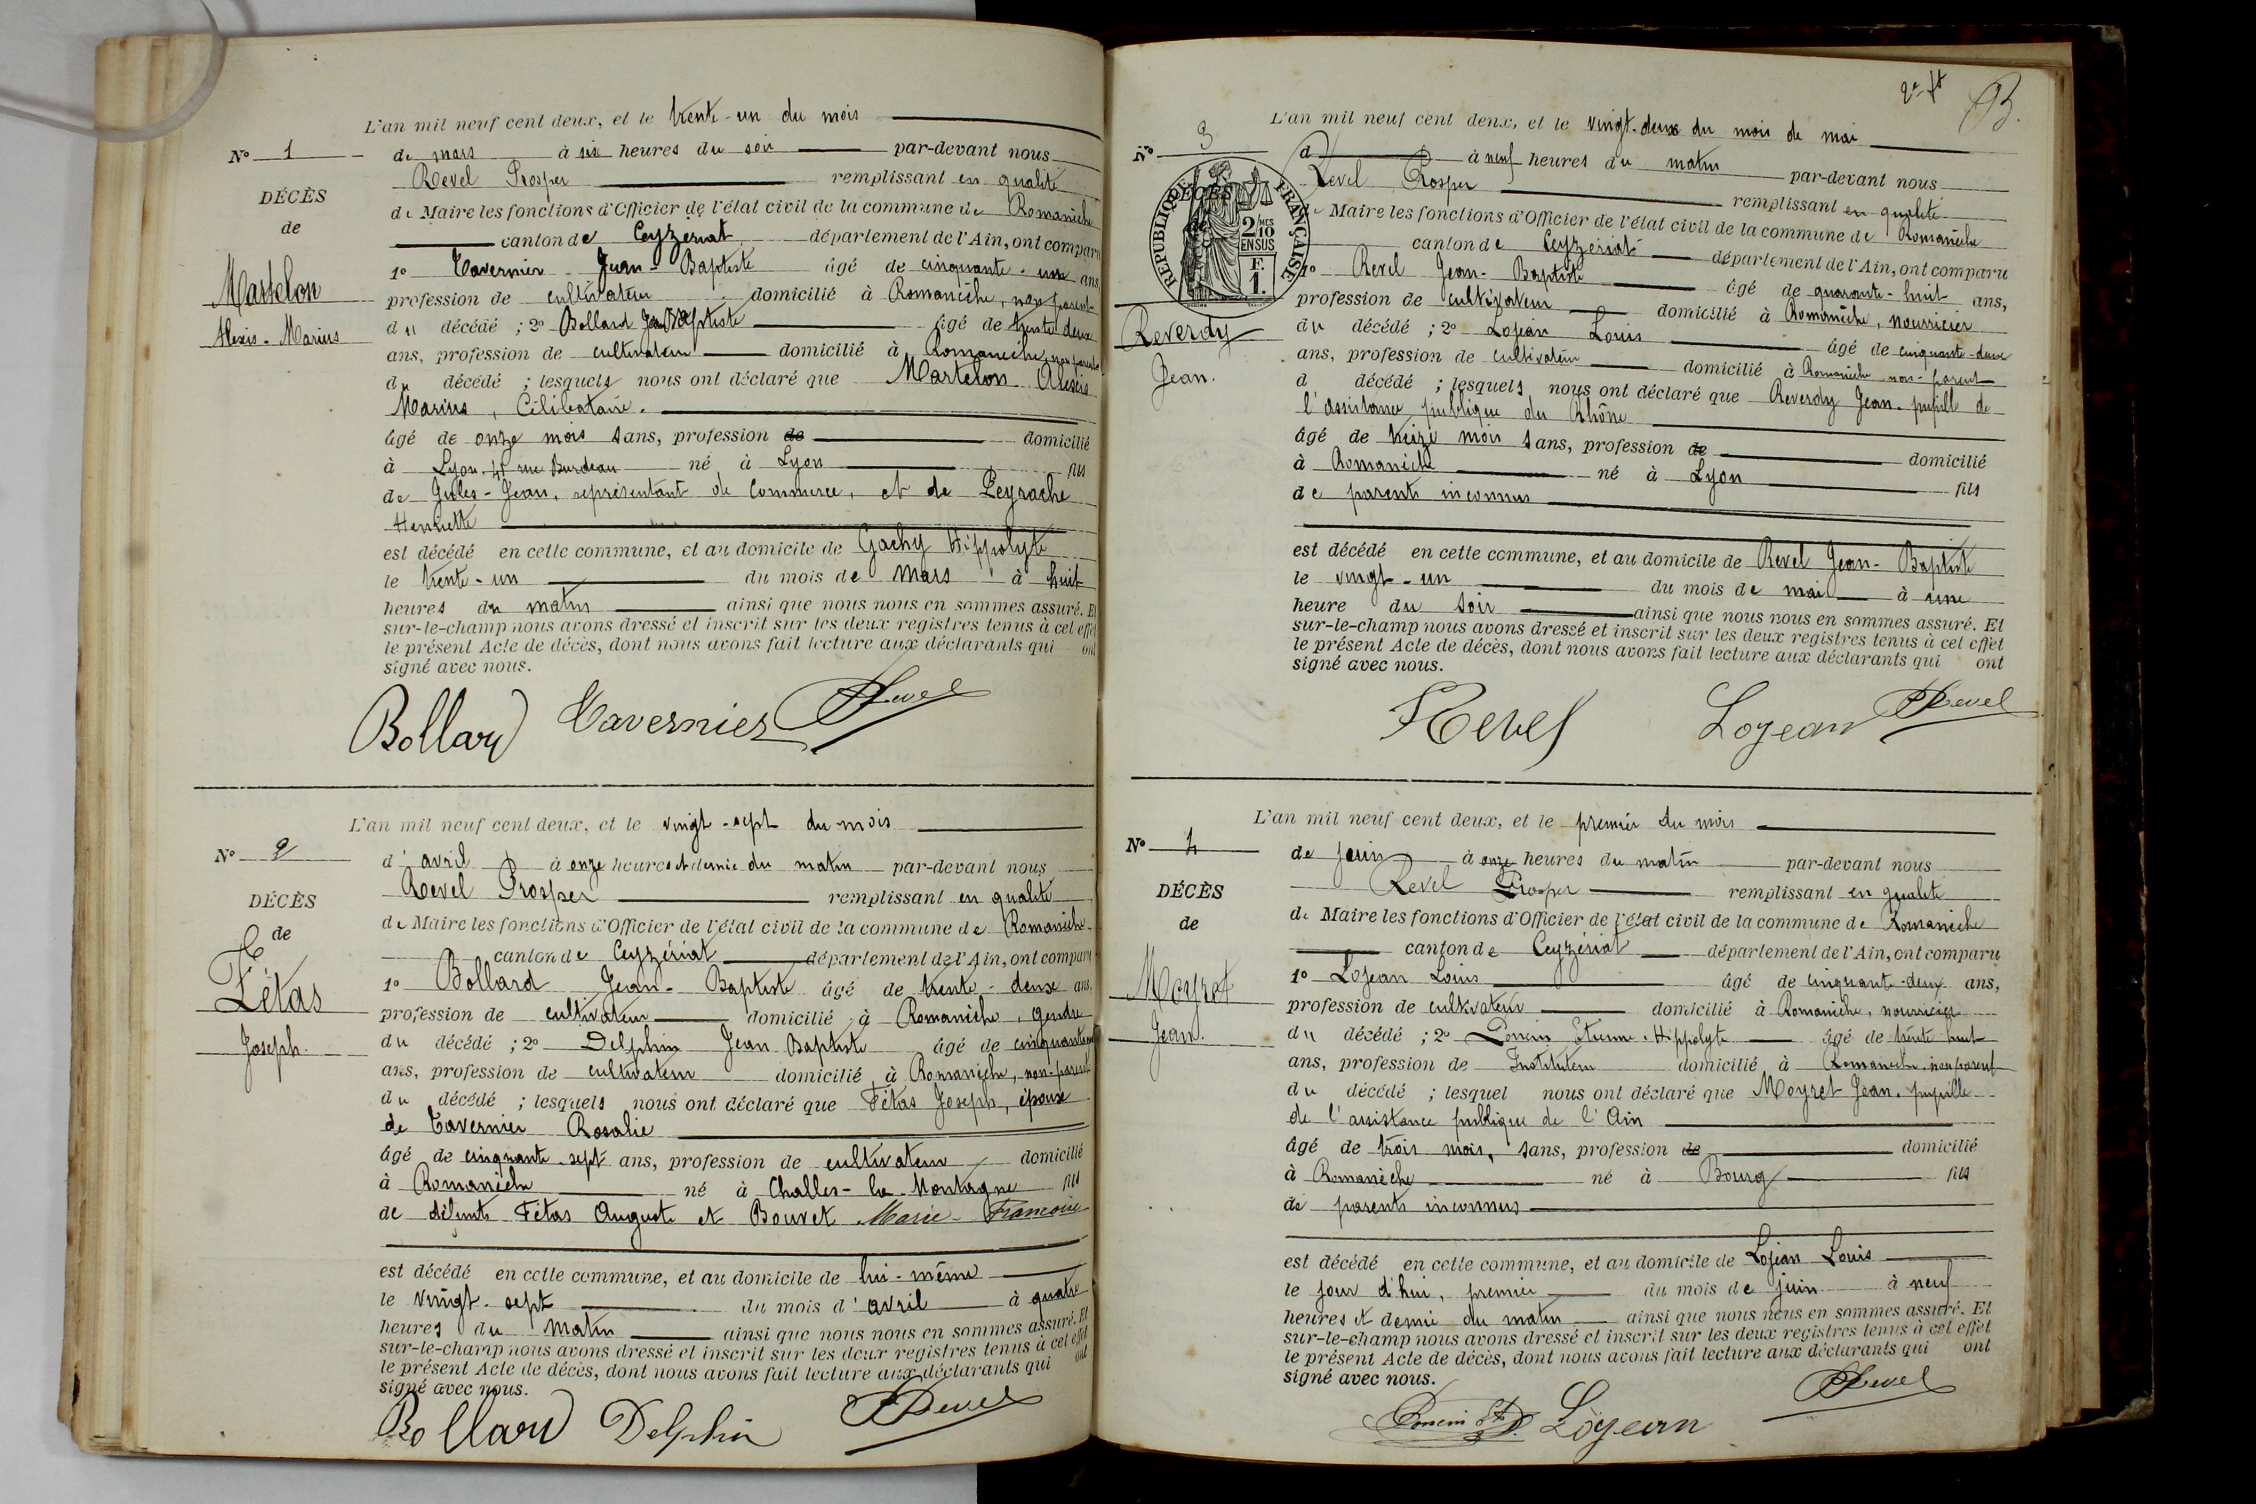 L'an mil neuf cent deux, et le trente-un du mois
No 1
de mars à six heures du soir par-devant nous
Revel Prosper remplissant en qualité
DÉCÈS
de Maire les fonctions d'Officier de l'état civil de la commune de Romanèche
de
canton de Ceyzériat département de l'Ain, ont comparu
1o Tavernier Jean-Baptiste âgé de cinquante-un ans,
Martelon
profession de cultivateur domicilié à Romanèche, non parent
Alexis-Marius
du décédé ; 2o Bollard Jean Baptiste âgé de trente-deux
ans, profession de cultivateur domicilié à Romanèche, non parent
du décédé ; lesquels nous ont déclaré que Martelon Alexis
Marius, Célibataire.
âgé de onze mois sans, profession de domicilié
à Lyon, rue Burdeau né à Lyon fils
de Jules-Jean, représentant de commerce, et de Peyrache
Henriette
est décédé en cette commune, et au domicile de Gachy Hippolyte
le trente-un du mois de mars à huit
heures du matin ainsi que nous nous en sommes assuré. Et
sur-le-champ nous avons dressé et inscrit sur les deux registres tenus à cet effet
le présent Acte de décès, dont nous avons fait lecture aux déclarants qui ont
signé avec nous.
Bollard Tavernier PRevel
L'an mil neuf cent deux, et le vingt-sept du mois
No 2
d'avril à onze heures et demie du matin par-devant nous
Revel Prosper remplissant en qualité
DÉCÈS
de Maire les fonctions d'Officier de l'état civil de la commune de Romanèche
de
canton de Ceyzériat département de l'Ain, ont comparu
1o Bollard Jean-Baptiste âgé de trente-deux ans,
Fétas
profession de cultivateur domicilié à Romanèche, gendre
Joseph
du décédé ; 2o Delphin Jean Baptiste âgé de cinquante
ans, profession de cultivateur domicilié à Romanèche, non-parent
du décédé ; lesquels nous ont déclaré que Fétas Joseph, époux
de Tavernier Rosalie
âgé de cinquante-sept ans, profession de cultivateur domicilié
à Romanèche né à Challes-la-Montagne fils
de défunts Fétas Auguste et Bouvet Marie-Francoise
est décédé en cette commune, et au domicile de lui-même
le vingt-sept du mois d'avril à quatre
heures du matin ainsi que nous nous en sommes assuré. Et
sur-le-champ nous avons dressé et inscrit sur les deux registres tenus à cet effet
le présent Acte de décès, dont nous avons fait lecture aux déclarants qui ont
signé avec nous.
Bollard Delphin PRevel
L'an mil neuf cent deux, et le vingt-deux du mois de mai
No 3
d à neuf heures du matin par-devant nous
Revel Prosper remplissant en qualité
DÉCÈS
de
RÉPUBLIQUE FRANÇAISE
2 MES
10
EN SUS
F.
1.
de Maire les fonctions d'Officier de l'état civil de la commune de Romanèche
canton de Ceyzériat département de l'Ain, ont comparu
1o Revel Jean-Baptiste âgé de quarante-huit ans,
profession de cultivateur domicilié à Romanèche, nourricier
Reverdy
Jean.
du décédé ; 2o Lojean Louis âgé de cinquante-deux
ans, profession de cultivateur domicilié à Romanèche non-parent
d décédé ; lesquels nous ont déclaré que Reverdy Jean, pupille de
l'assistance publique du Rhône
âgé de treize mois sans, profession de domicilié
à Romanèche né à Lyon fils
de parents inconnus
est décédé en cette commune, et au domicile de Revel Jean-Baptiste
le vingt-un du mois de mai à une
heure du soir ainsi que nous nous en sommes assuré. Et
sur-le-champ nous avons dressé et inscrit sur les deux registres tenus à cet effet
le présent Acte de décès, dont nous avons fait lecture aux déclarants qui ont
signé avec nous.
Revel Lojean PRevel
L'an mil neuf cent deux, et le premier du mois
No 4
de juin à onze heures du matin par-devant nous
Revel Prosper remplissant en qualité
DÉCÈS
de Maire les fonctions d'Officier de l'état civil de la commune de Romanèche
de
canton de Ceyzériat département de l'Ain, ont comparu
1o Lojean Louis âgé de cinquante-deux ans,
Moyret
profession de cultivateur domicilié à Romanèche, nourricier
Jean.
du décédé ; 2o Poncin Etienne-Hippolyte âgé de trente huit
ans, profession de Instituteur domicilié à Romanèche, non parent
du décédé ; lesquel nous ont déclaré que Moyret Jean, pupille
de l'assistance publique de l'Ain
âgé de trois mois, sans, profession de domicilié
à Romanèche né à Bourg fils
de parents inconnus
est décédé en cette commune, et au domicile de Lojean Louis
le jour d'hui, premier du mois de juin à neuf
heures et demie du matin ainsi que nous nous en sommes assuré. Et
sur-le-champ nous avons dressé et inscrit sur les deux registres tenus à cet effet
le présent Acte de décès, dont nous avons fait lecture aux déclarants qui ont
signé avec nous.
Poncin Lojean PRevel